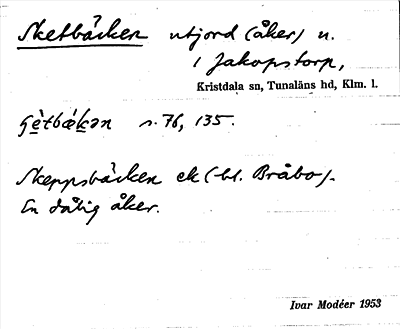 Sketbäcken utjord (åker) n.
i Jakopstorp,
Kristdala sn, Tunaläns hd, Klm. l.
s. 76, 135.
Skeppsbäcken ek (bl. Bråbo).
En dålig åker.
Ivar Modéer 1953